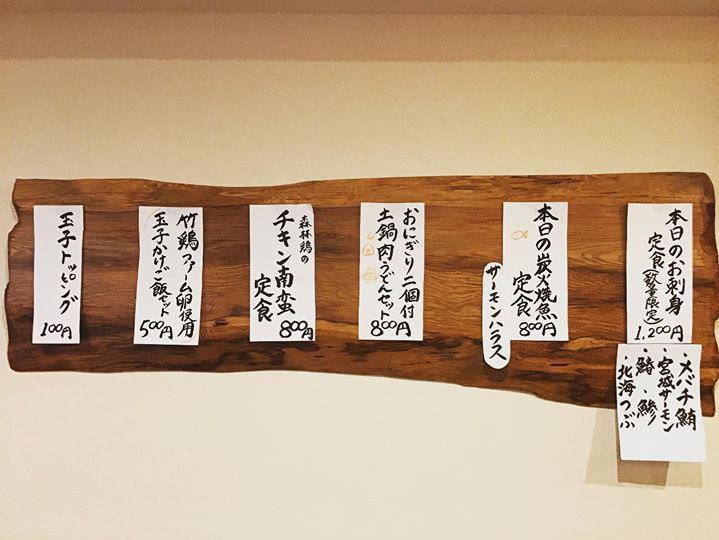 本日のお刺身
定食(数量限定)
1,200円
・メバチ鮪
・宮城サーモン
・鰆・鯵
・北海つぶ
本日の炭火焼魚
定食
800円
サーモンハラス
おにぎり二個付
土鍋肉うどんセット
800円
森林鶏の
チキン南蛮
定食
800円
竹鶏ファーム卵使用
玉子かけご飯セット
500円
玉子トッピング
100円